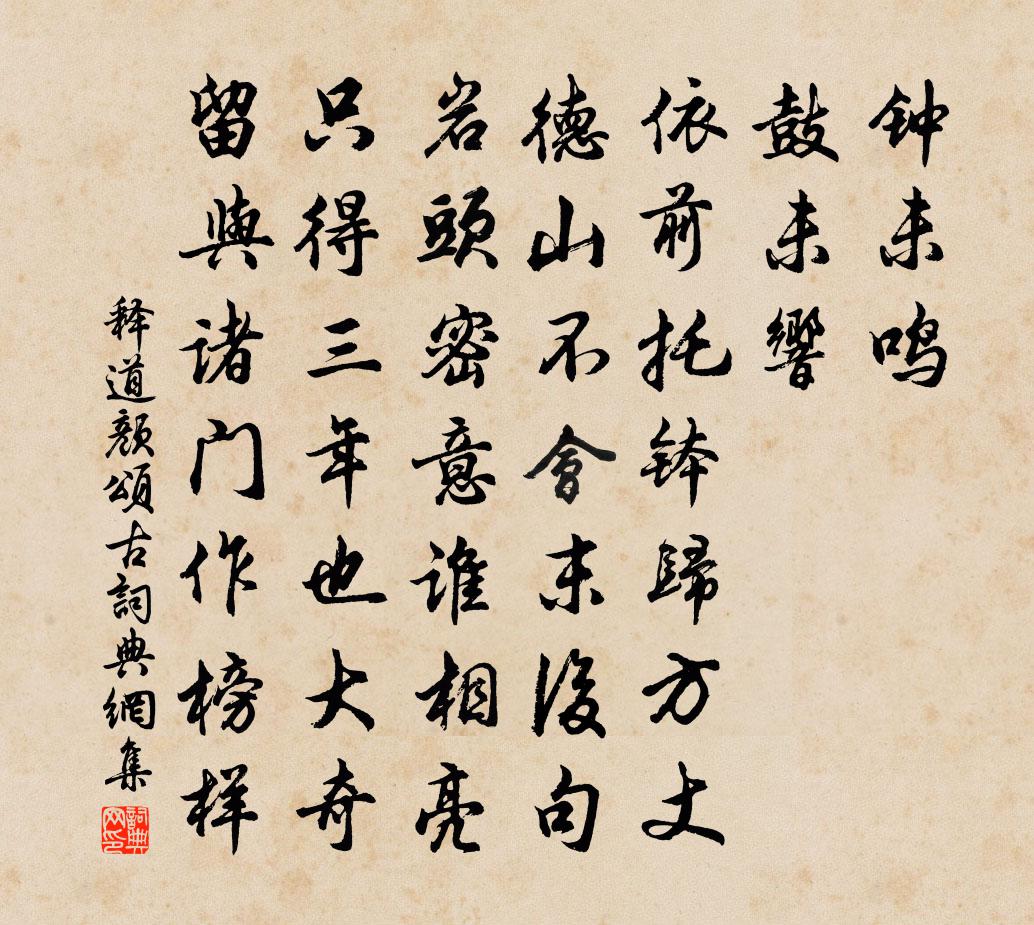 钟未鸣
鼓未響
依前托钵歸方丈
德山不會末後句
岩頭密意谁相亮
只得三年也大奇
留與诸门作榜样
释道颜頌古詞典網集
詞典网印